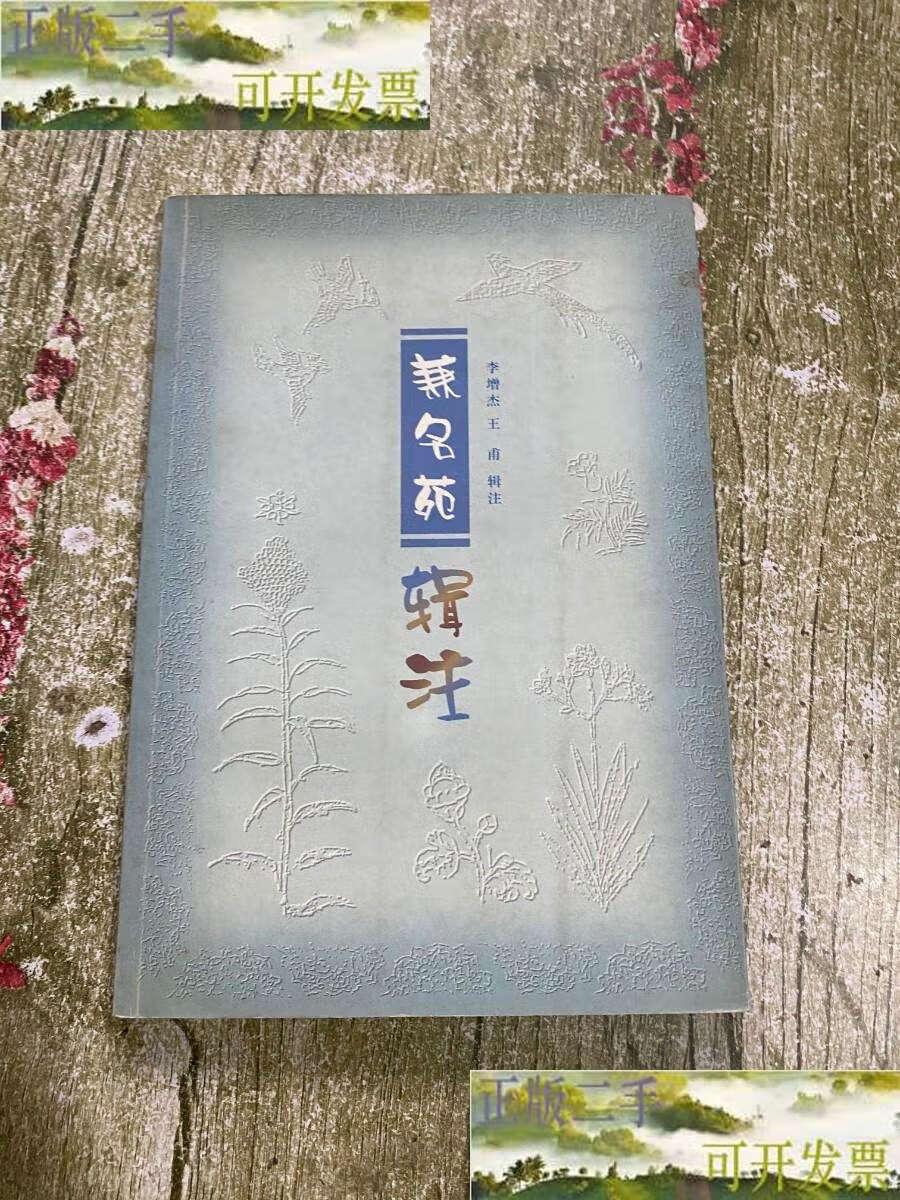 正版二手
可开发票
兼名苑
辑注
李增杰 王甫 辑注
正版二手
可开发票